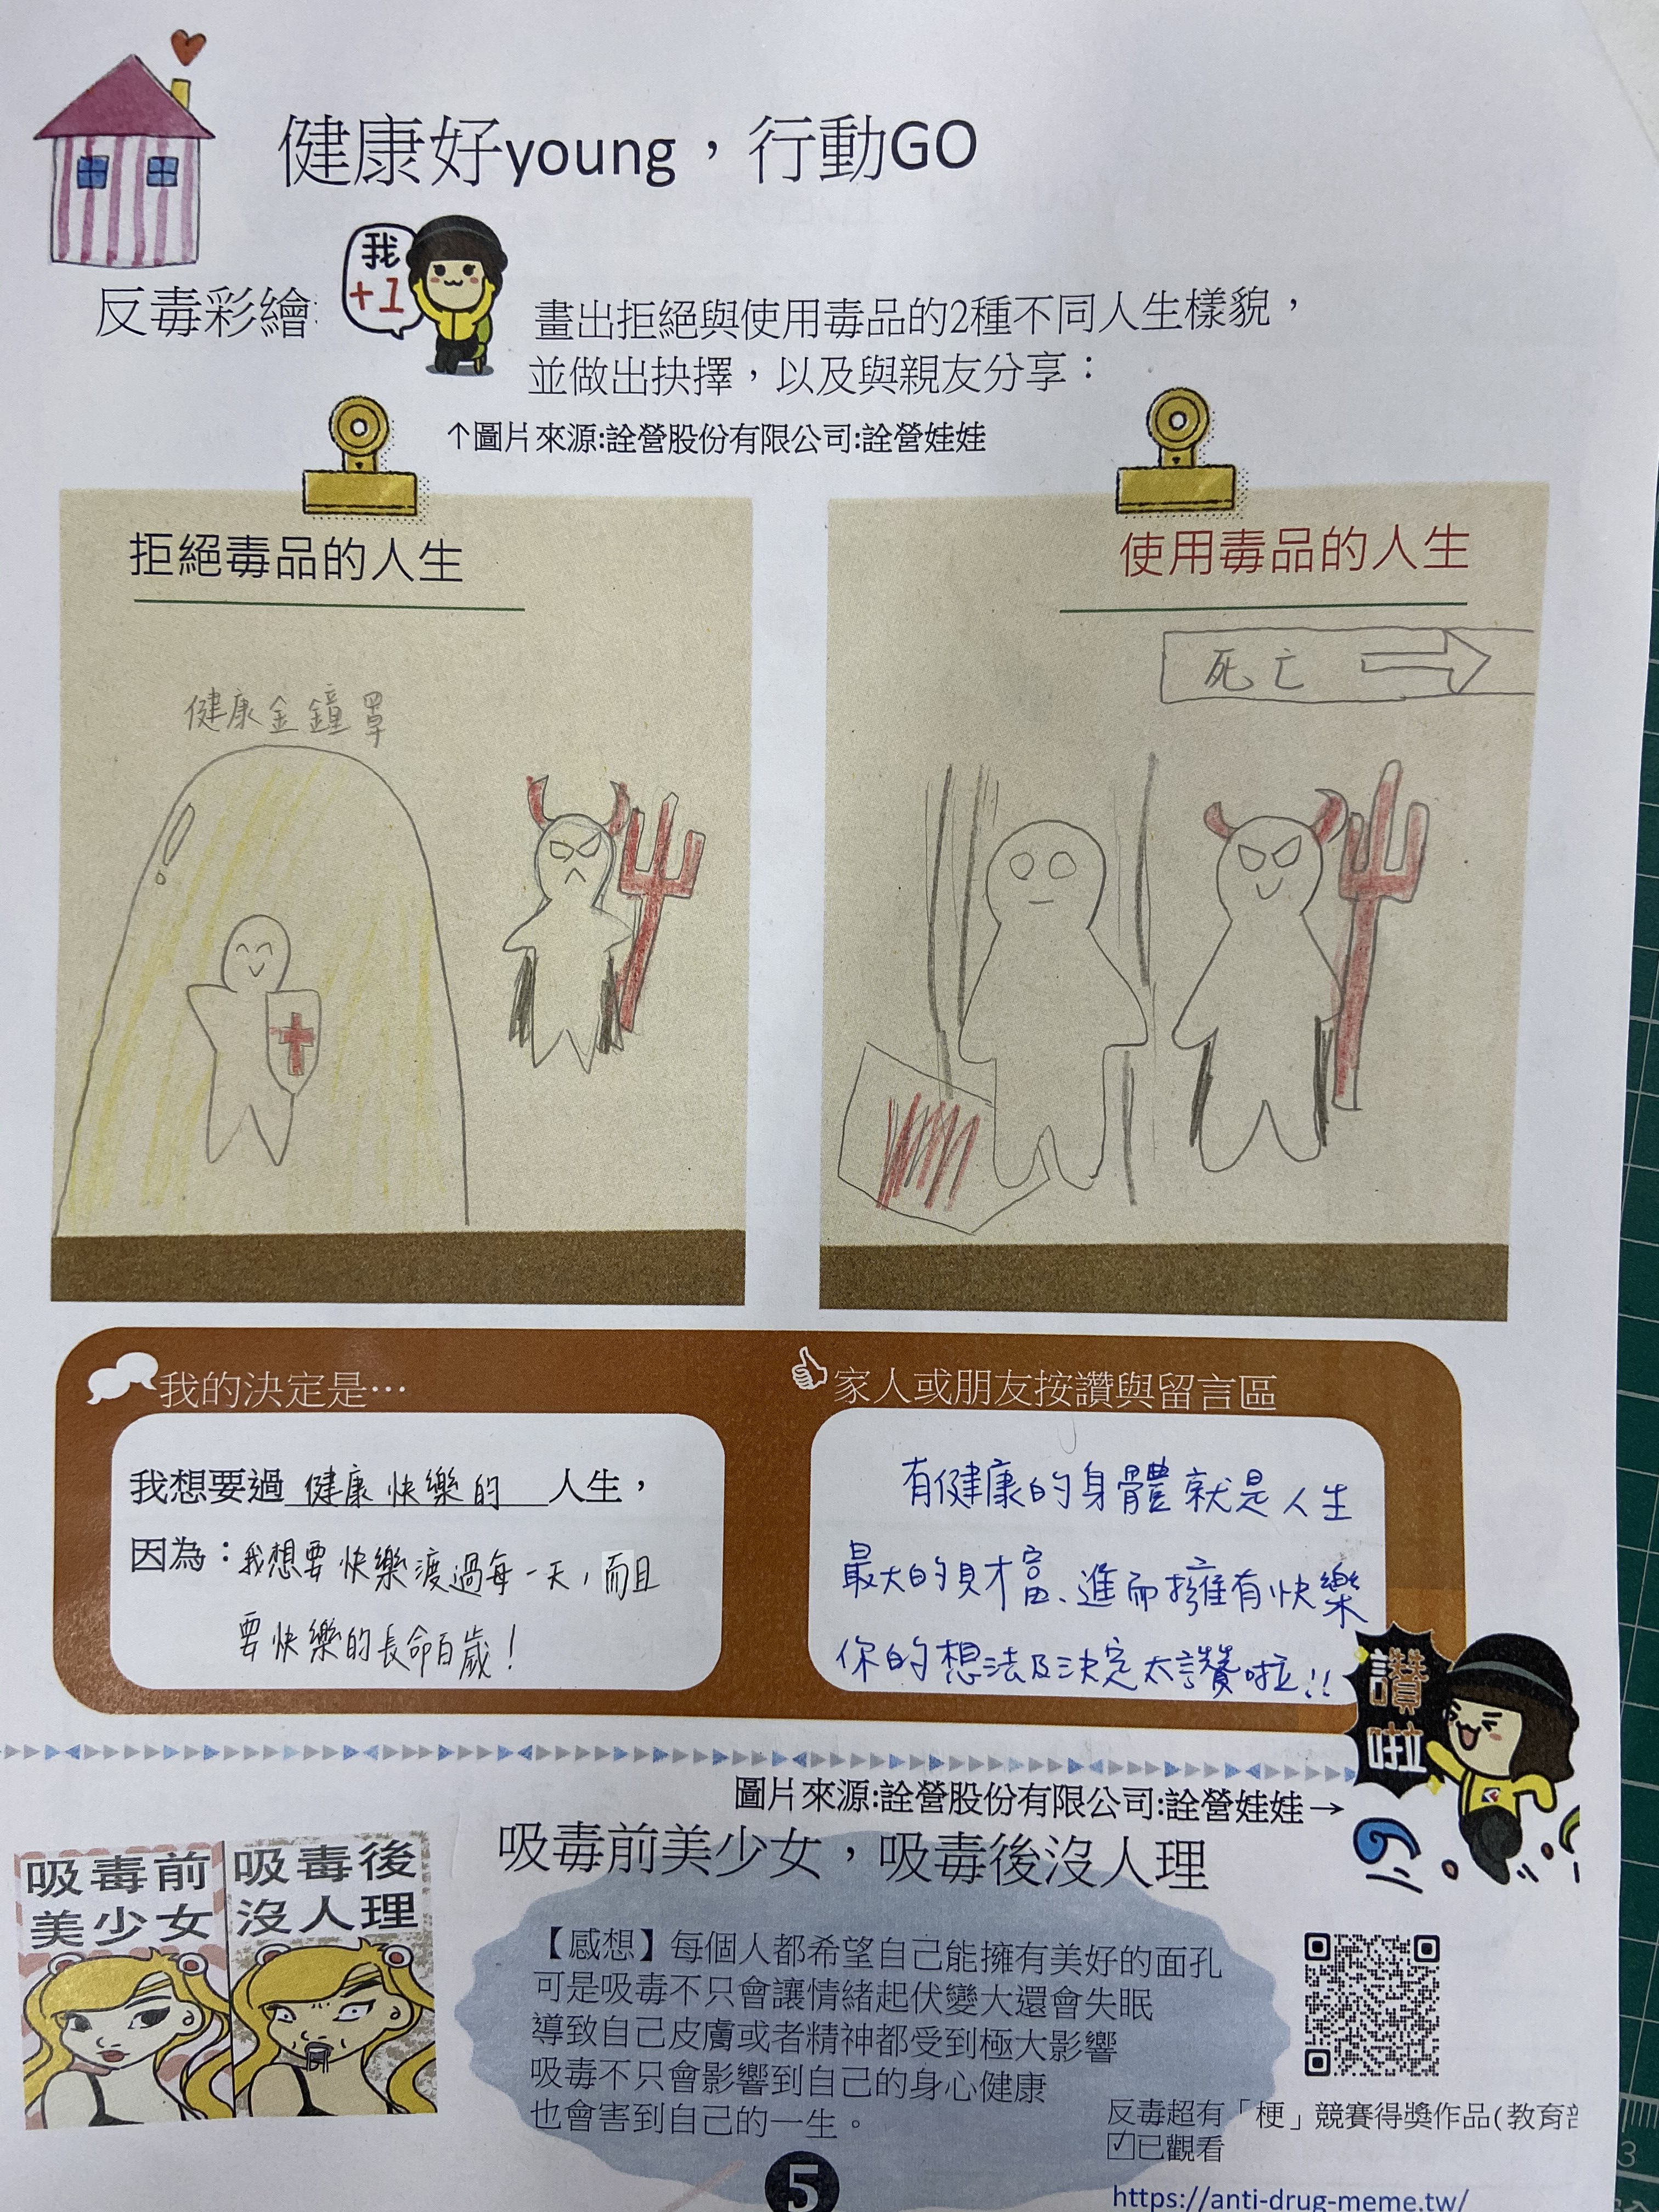 健康好young，行動GO
我
+1
反毒彩繪:
畫出拒絕與使用毒品的2種不同人生樣貌，
並做出抉擇，以及與親友分享：
↑圖片來源:詮營股份有限公司:詮營娃娃
拒絕毒品的人生
健康金鐘罩
使用毒品的人生
死亡
我的決定是…
我想要過 健康快樂的 人生，
因為：我想要快樂渡過每一天，而且
要快樂的長命百歲！
家人或朋友按讚與留言區
有健康的身體就是人生
最大的財富、進而擁有快樂
你的想法及決定太讚啦!!
讚
啦
圖片來源:詮營股份有限公司:詮營娃娃→
吸毒前
美少女
吸毒後
沒人理
吸毒前美少女，吸毒後沒人理
【感想】每個人都希望自己能擁有美好的面孔
可是吸毒不只會讓情緒起伏變大還會失眠
導致自己皮膚或者精神都受到極大影響
吸毒不只會影響到自己的身心健康
也會害到自己的一生。
反毒超有「梗」競賽得獎作品(教育部
☑已觀看
https://anti-drug-meme.tw/
5
3